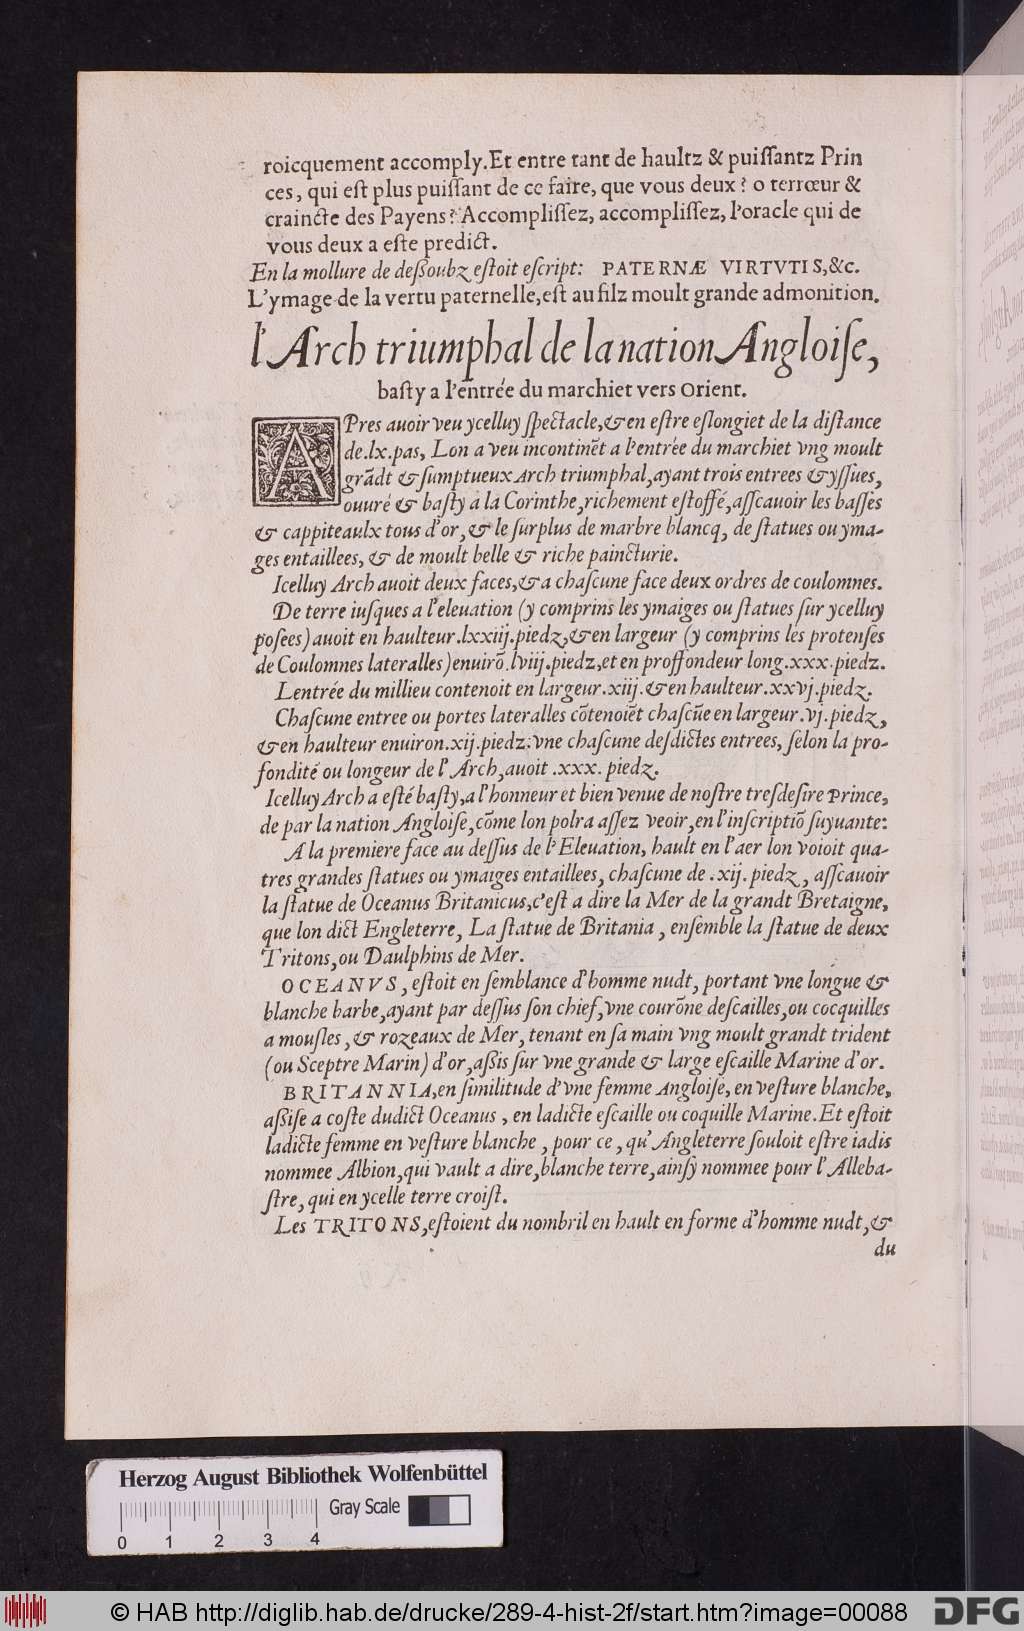 roicquement accomply. Et entre tant de haultz & puiſſantz Prin
ces, qui eſt plus puiſſant de ce faire, que vous deux? o terrœur &
craincte des Payens? Accompliſſez, accompliſſez, l'oracle qui de
vous deux a eſte predict.
En la mollure de deßoubz eſtoit eſcript: PATERNÆ VIRTVTIS, &c.
L'ymage de la vertu paternelle, eſt au filz moult grande admonition.
l'Arch triumphal de la nation Angloiſe,
baſty a l'entrée du marchiet vers Orient.
APres auoir veu ycelluy ſpectacle, & en eſtre eſlongiet de la diſtance
de .lx. pas, Lon a veu incontinẽt a l'entrée du marchiet vng moult
grãdt & ſumptueux Arch triumphal, ayant trois entrees & yſſues,
ouuré & baſty à la Corinthe, richement eſtoffé, aſſcauoir les baſſes
& cappiteaulx tous d'or, & le ſurplus de marbre blancq, de ſtatues ou yma-
ges entaillees, & de moult belle & riche paincturie.
Icelluy Arch auoit deux faces, & a chaſcune face deux ordres de coulomnes.
De terre iuſques a l'eleuation (y comprins les ymaiges ou ſtatues ſur ycelluy
poſées) auoit en haulteur .lxxiij. piedz, & en largeur (y comprins les protenſes
de Coulomnes lateralles) enuirõ .lviij. piedz, et en proffondeur long .xxx. piedz.
Lentrée du millieu contenoit en largeur .xiij. & en haulteur .xxvj. piedz.
Chaſcune entree ou portes lateralles cõtenoiẽt chaſcũe en largeur .vj. piedz,
& en haulteur enuiron .xij. piedz: vne chaſcune deſdictes entrees, ſelon la pro-
fondité ou longeur de l'Arch, auoit .xxx. piedz.
Icelluy Arch a eſté baſty, a l'honneur et bien venue de noſtre treſdeſire Prince,
de par la nation Angloiſe, cõme lon polra aſſez veoir, en l'inſcriptiõ ſuyuante:
A la premiere face au deſſus de l'Eleuation, hault en l'aer lon voioit qua-
tres grandes ſtatues ou ymaiges entaillees, chaſcune de .xij. piedz, aſſcauoir
la ſtatue de Oceanus Britanicus, c'eſt a dire la Mer de la grandt Bretaigne,
que lon dict Engleterre, La ſtatue de Britania, enſemble la ſtatue de deux
Tritons, ou Daulphins de Mer.
OCEANVS, eſtoit en ſemblance d'homme nudt, portant vne longue &
blanche barbe, ayant par deſſus ſon chief, vne courõne deſcailles, ou cocquilles
a mouſles, & rozeaux de Mer, tenant en ſa main vng moult grandt trident
(ou Sceptre Marin) d'or, aßis ſur vne grande & large eſcaille Marine d'or.
BRITANNIA, en ſimilitude d'vne femme Angloiſe, en veſture blanche,
aßiſe a coſte dudict Oceanus, en ladicte eſcaille ou coquille Marine. Et eſtoit
ladicte femme en veſture blanche, pour ce, qu'Angleterre ſouloit eſtre iadis
nommee Albion, qui vault a dire, blanche terre, ainſy nommee pour l'Alleba-
ſtre, qui en ycelle terre croiſt.
Les TRITONS, eſtoient du nombril en hault en forme d'homme nudt, &
du
Herzog August Bibliothek Wolfenbüttel
Gray Scale
0 1 2 3 4
© HAB http://diglib.hab.de/drucke/289-4-hist-2f/start.htm?image=00088
DFG